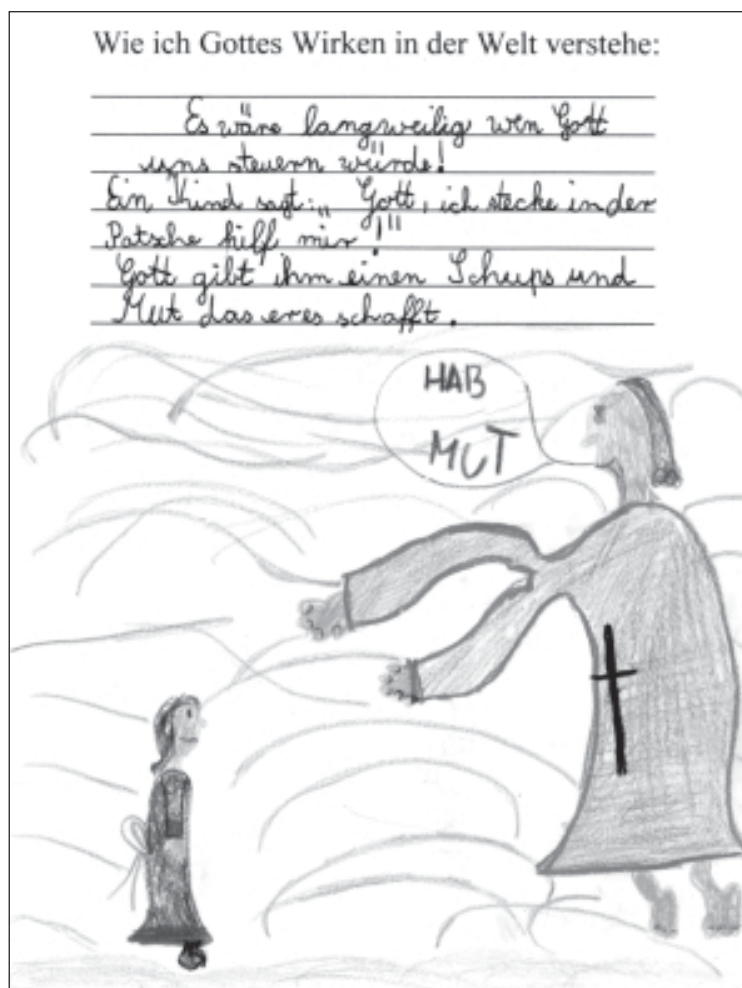 Wie ich Gottes Wirken in der Welt verstehe:
Es wäre langweilig wen Gott
uns steuern würde!
Ein Kind sagt: „Gott, ich stecke in der
Patsche hilf mir!"
Gott gibt ihm einen Schups und
Mut das er es schafft.
HAB
MUT